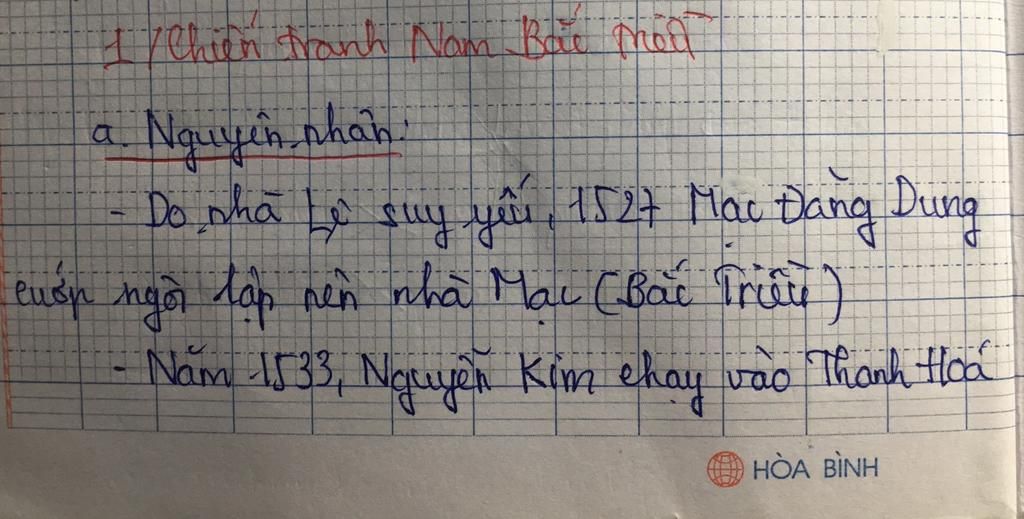 1/Chiến tranh Nam-Bắc triều
a. Nguyên nhân:
- Do nhà Lê suy yếu, 1527 Mạc Đăng Dung
cướp ngôi lập nên nhà Mạc (Bắc Triều)
- Năm 1533, Nguyễn Kim chạy vào Thanh Hoá
HÒA BÌNH